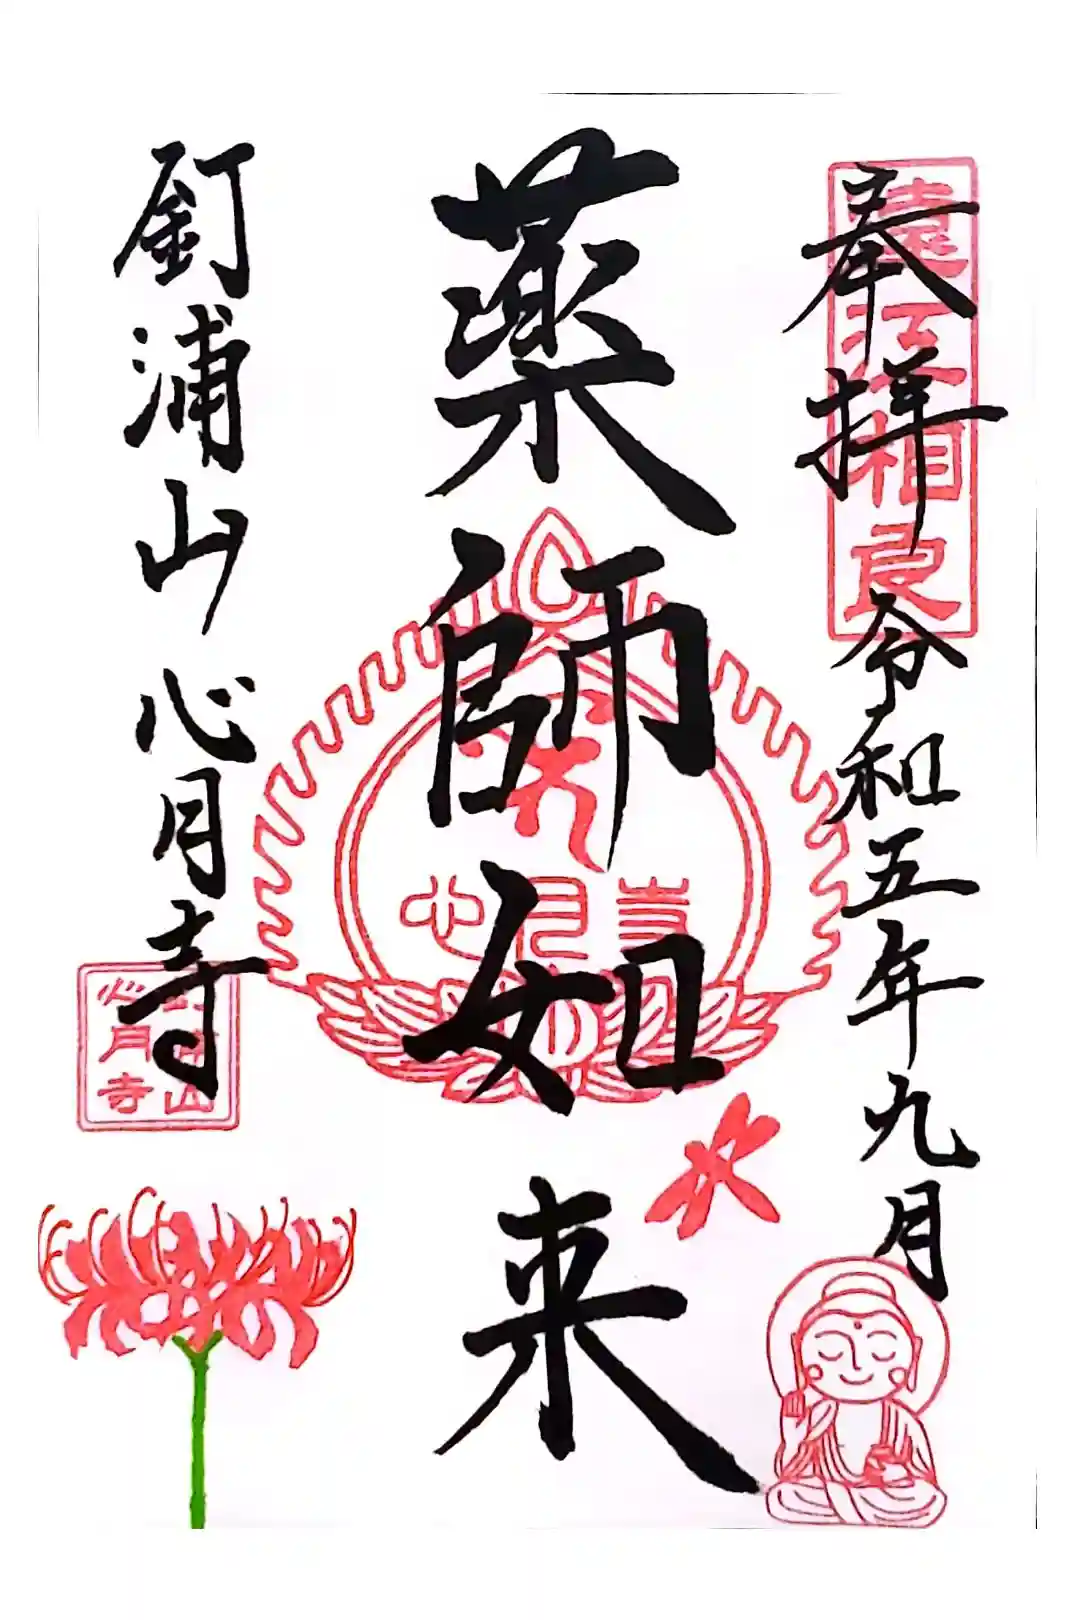 奉拝 令和五年九月
遠江相良
薬師如来
心月寺
釘浦山 心月寺
釘浦山
心月寺